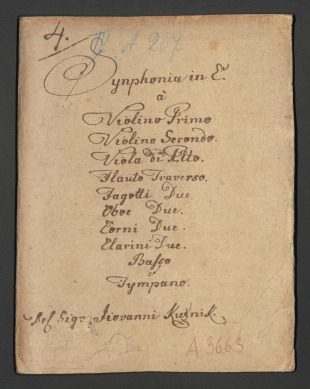 4.
A 217
Synphonia in C.
à
Violino Primo
Violino Secondo.
Viola di Alto.
Flauto Traverso.
Fagotti Due.
Oboe Due.
Corni Due.
Clarini Due.
Basso
e
Tympano.
Del Sigr Giovanni Kuznik.
A 3663